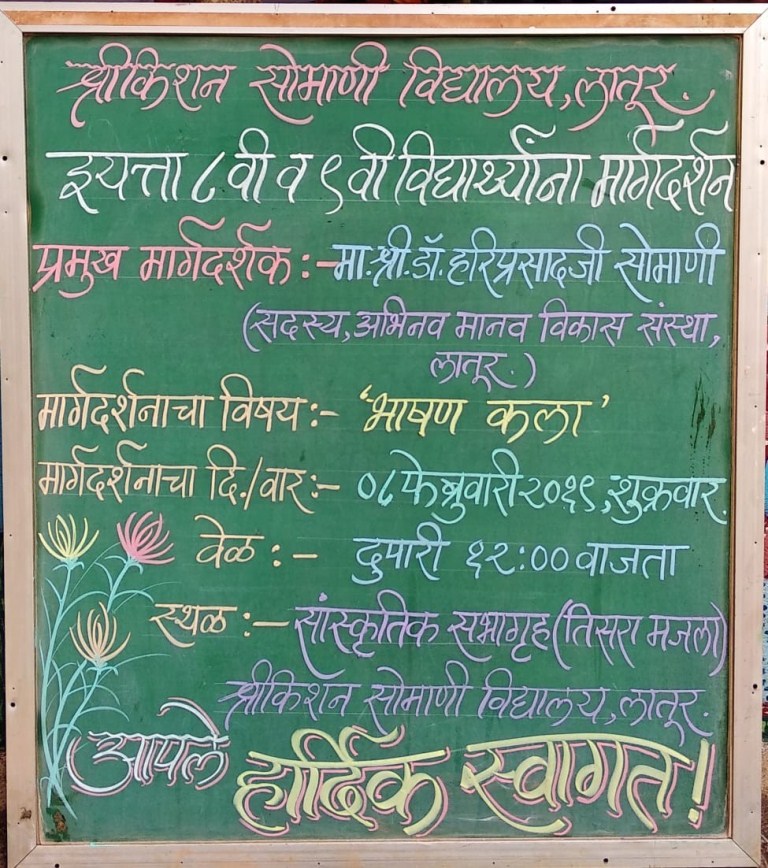 श्रीकिशन सोमाणी विद्यालय, लातूर.
इयत्ता ८ वी व ९ वी विद्यार्थ्यांना मार्गदर्शन
प्रमुख मार्गदर्शक :- मा.श्री.डॉ. हरिप्रसादजी सोमाणी
(सदस्य, अभिनव मानव विकास संस्था,
लातूर.)
मार्गदर्शनाचा विषय :- 'भाषण कला'
मार्गदर्शनाचा दि./वार :- ०८ फेब्रुवारी २०१९, शुक्रवार.
वेळ :- दुपारी १२:०० वाजता
स्थळ :- सांस्कृतिक सभागृह (तिसरा मजला)
श्रीकिशन सोमाणी विद्यालय, लातूर.
आपले हार्दिक स्वागत!